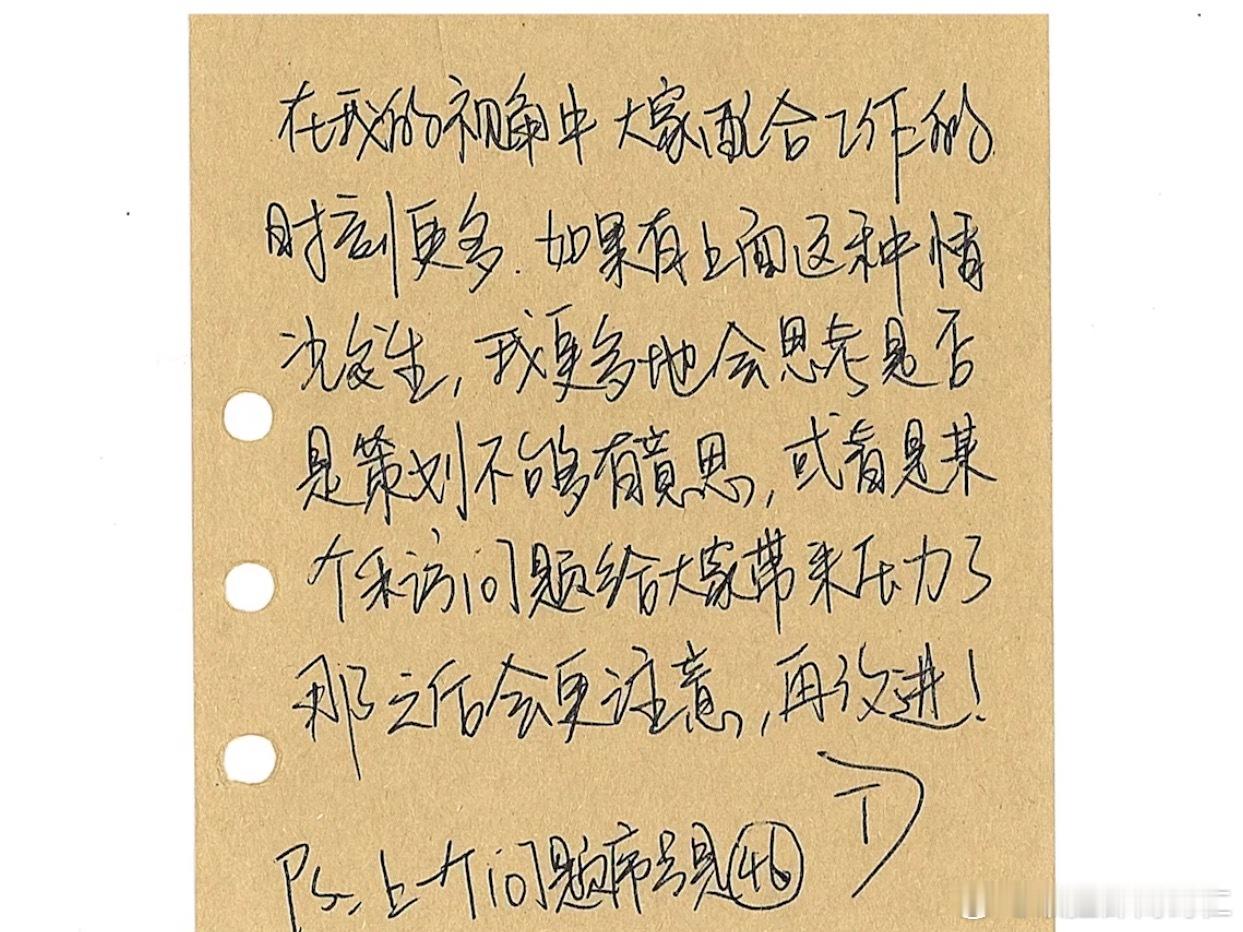 在我的视角中大家配合工作的
时刻更多.如果有上面这种情
况发生,我更多地会思考是否
是策划不够有意思,或者是某
个采访问题给大家带来压力了
那之后会更注意,再改进!
Ps.上个问题序号是㊻